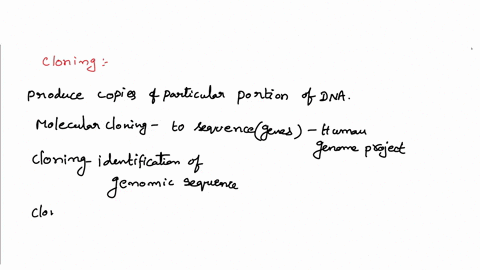 Cloning :-
produce copies of particular portion of DNA.
Molecular cloning - to sequence (genes) - Human
genome project
cloning identification of
genomic sequence
clo